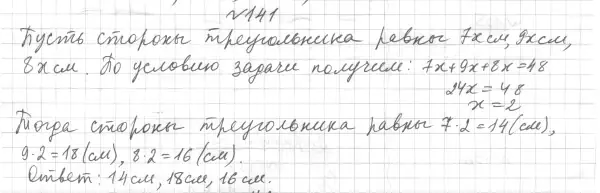 №141
Пусть стороны треугольника равны 7x см, 9x см,
8x см. По условию задачи получим: 7x+9x+8x=48
24x=48
x=2
Тогда стороны треугольника равны 7·2=14(см),
9·2=18(см), 8·2=16(см).
Ответ: 14см, 18см, 16см.